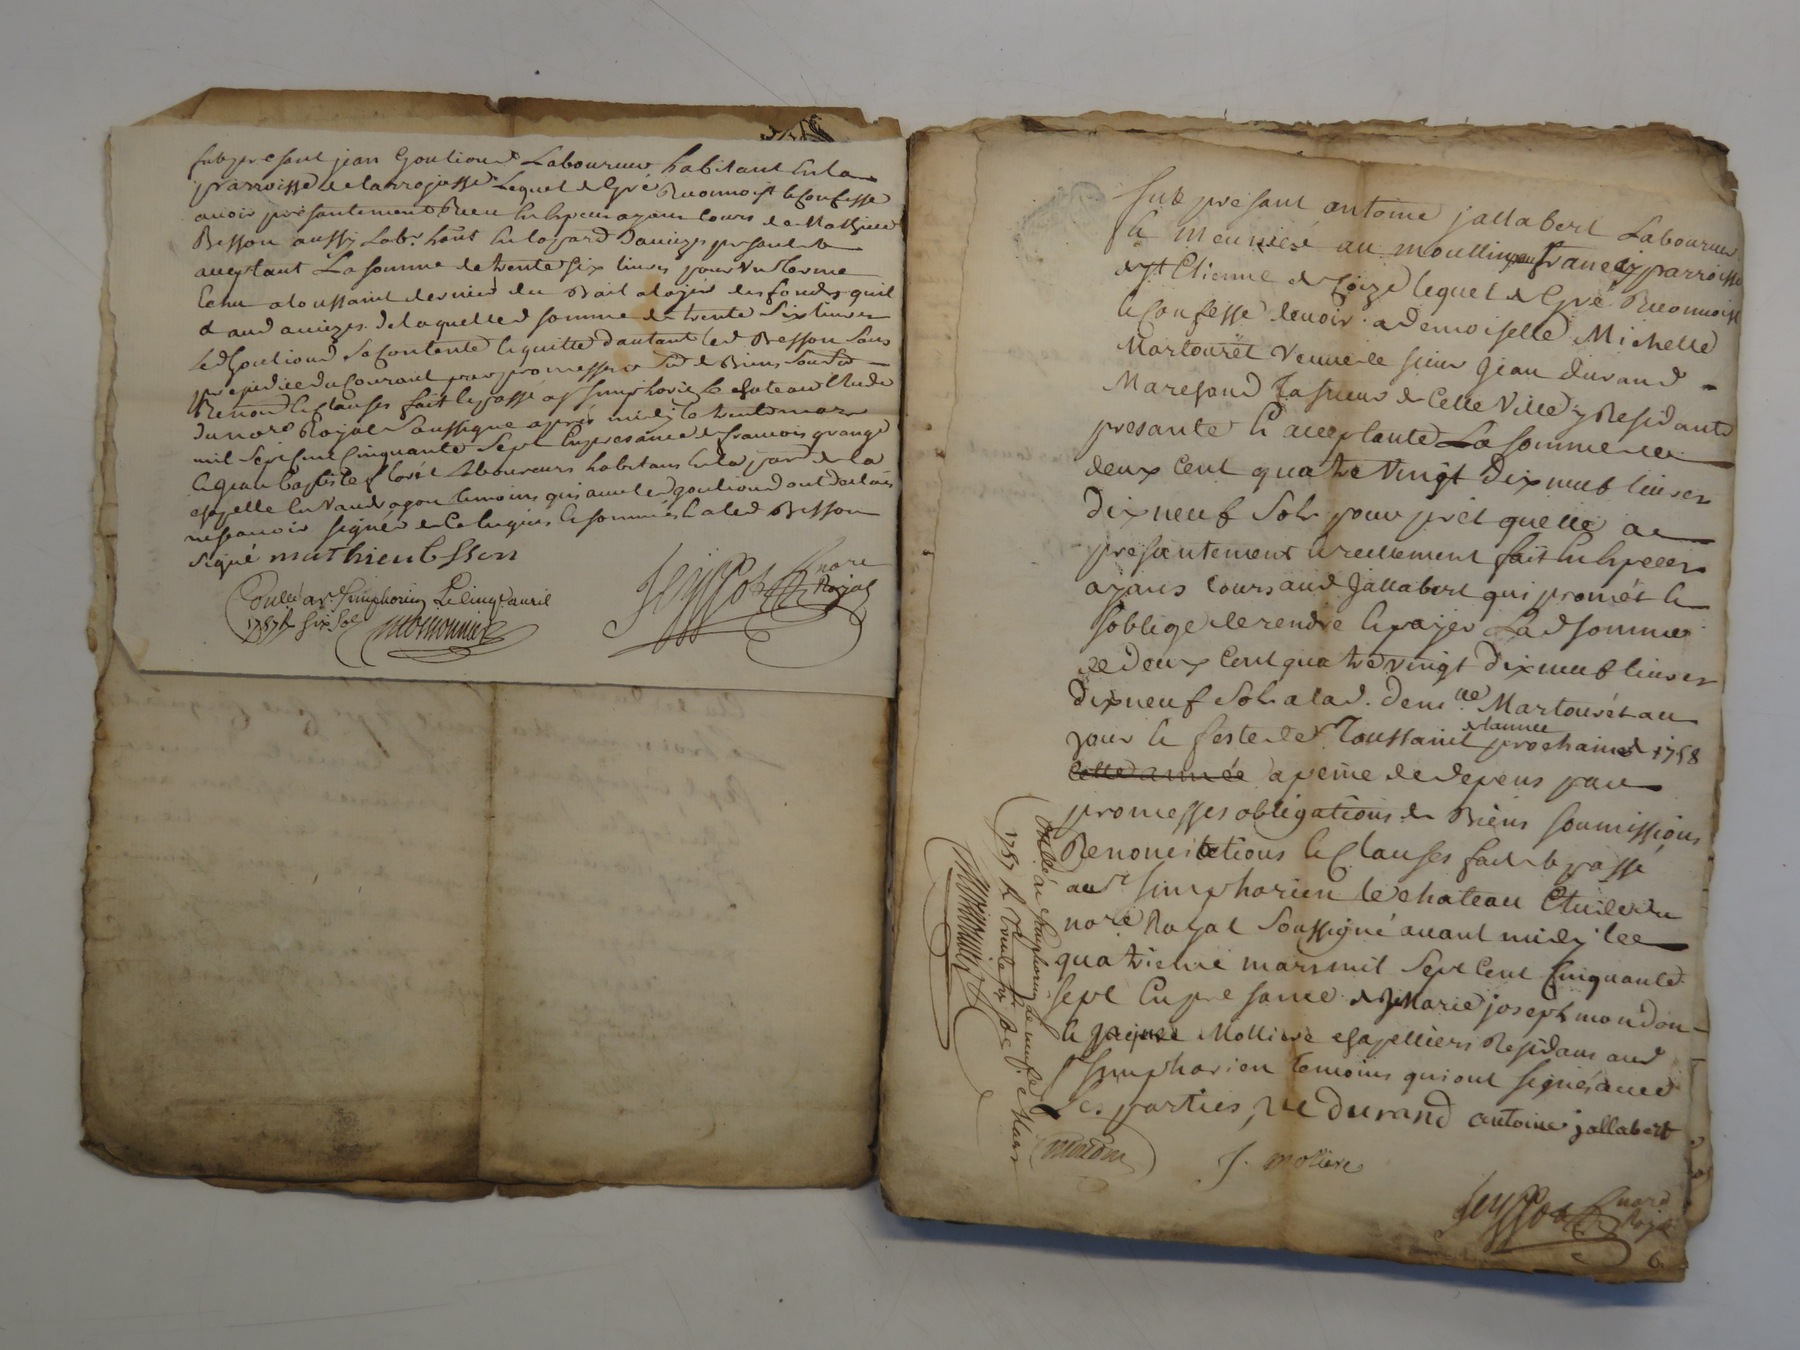 fut present jean Goutiond Laboureur habitant en la
parroisse de larrajasse Lequel de Gré Reconnoist & confesse
avoir presentement Receu en especes ayant cours de Mathieu
Besson aussy Lab.r ha'nt present &
acceptant La somme de trente six livres pour un terme
echu a toussaint dernier du Bail a loyer des fonds quil
de laquelle d somme de trente six livres
Led Goutiond se contente & quitte d'autant led Besson sans
prejudice du Courant par promesses
Renon.ns & clauses fait & passé a s.t simphorien le chateau Etude
du nore Royal soussigné apres midy le trente mars
mil sept cent cinquante sept en presance de francois grange
& jean baptiste laboureurs habitans en la parr de la
chapelle en Vaudragon temoins qui avec led goutiond ont declaré
ne scavoir signer de ce enquis & sommés & a led Besson
signé mathieu besson
Conllé a s.t simphorien Le cinq avril
1757 R six sols
nore
Royal
Sus present antoine jallabert Laboureur
& meunier au moullin franc parroisse
de s.t Etienne de Coize lequel de Gré Reconnoist
& confesse devoir a Demoiselle Michelle
Martourët veuve de sieur Jean durand
Marchand de cette ville y Residante
presante & acceptante La somme de
deux cent quatre vingt dix neuf livres
dix neuf sols pour prêt quelle a
presentement & reellement fait en especes
ayans cours aud Jallabert qui promét &
s'oblige de rendre & payer La d somme
de deux cent quatre vingt dix neuf livres
dix neuf sols a la d. dem.lle Martourét au
jour & feste de Toussaint de lannée prochaine 1758
cette année a peine de depens par
promesses obligations de Biens soumissions
Renonciations & clauses fait & passé
au s.t simphorien le chateau Etude du
nore Royal soussigné avant midy le
quatrieme mars mil sept cent cinquante
sept en presance de Marie joseph mondon
& jaque Molliere chapelliers Residans aud
s.t simphorien temoins qui ont signés avec
Les parties, ve Durand antoine jallabert
mondon J. moliere
nore
Royal
6
Conllé a s.t simphorien le neuf de Mars
1757 R trente six sols